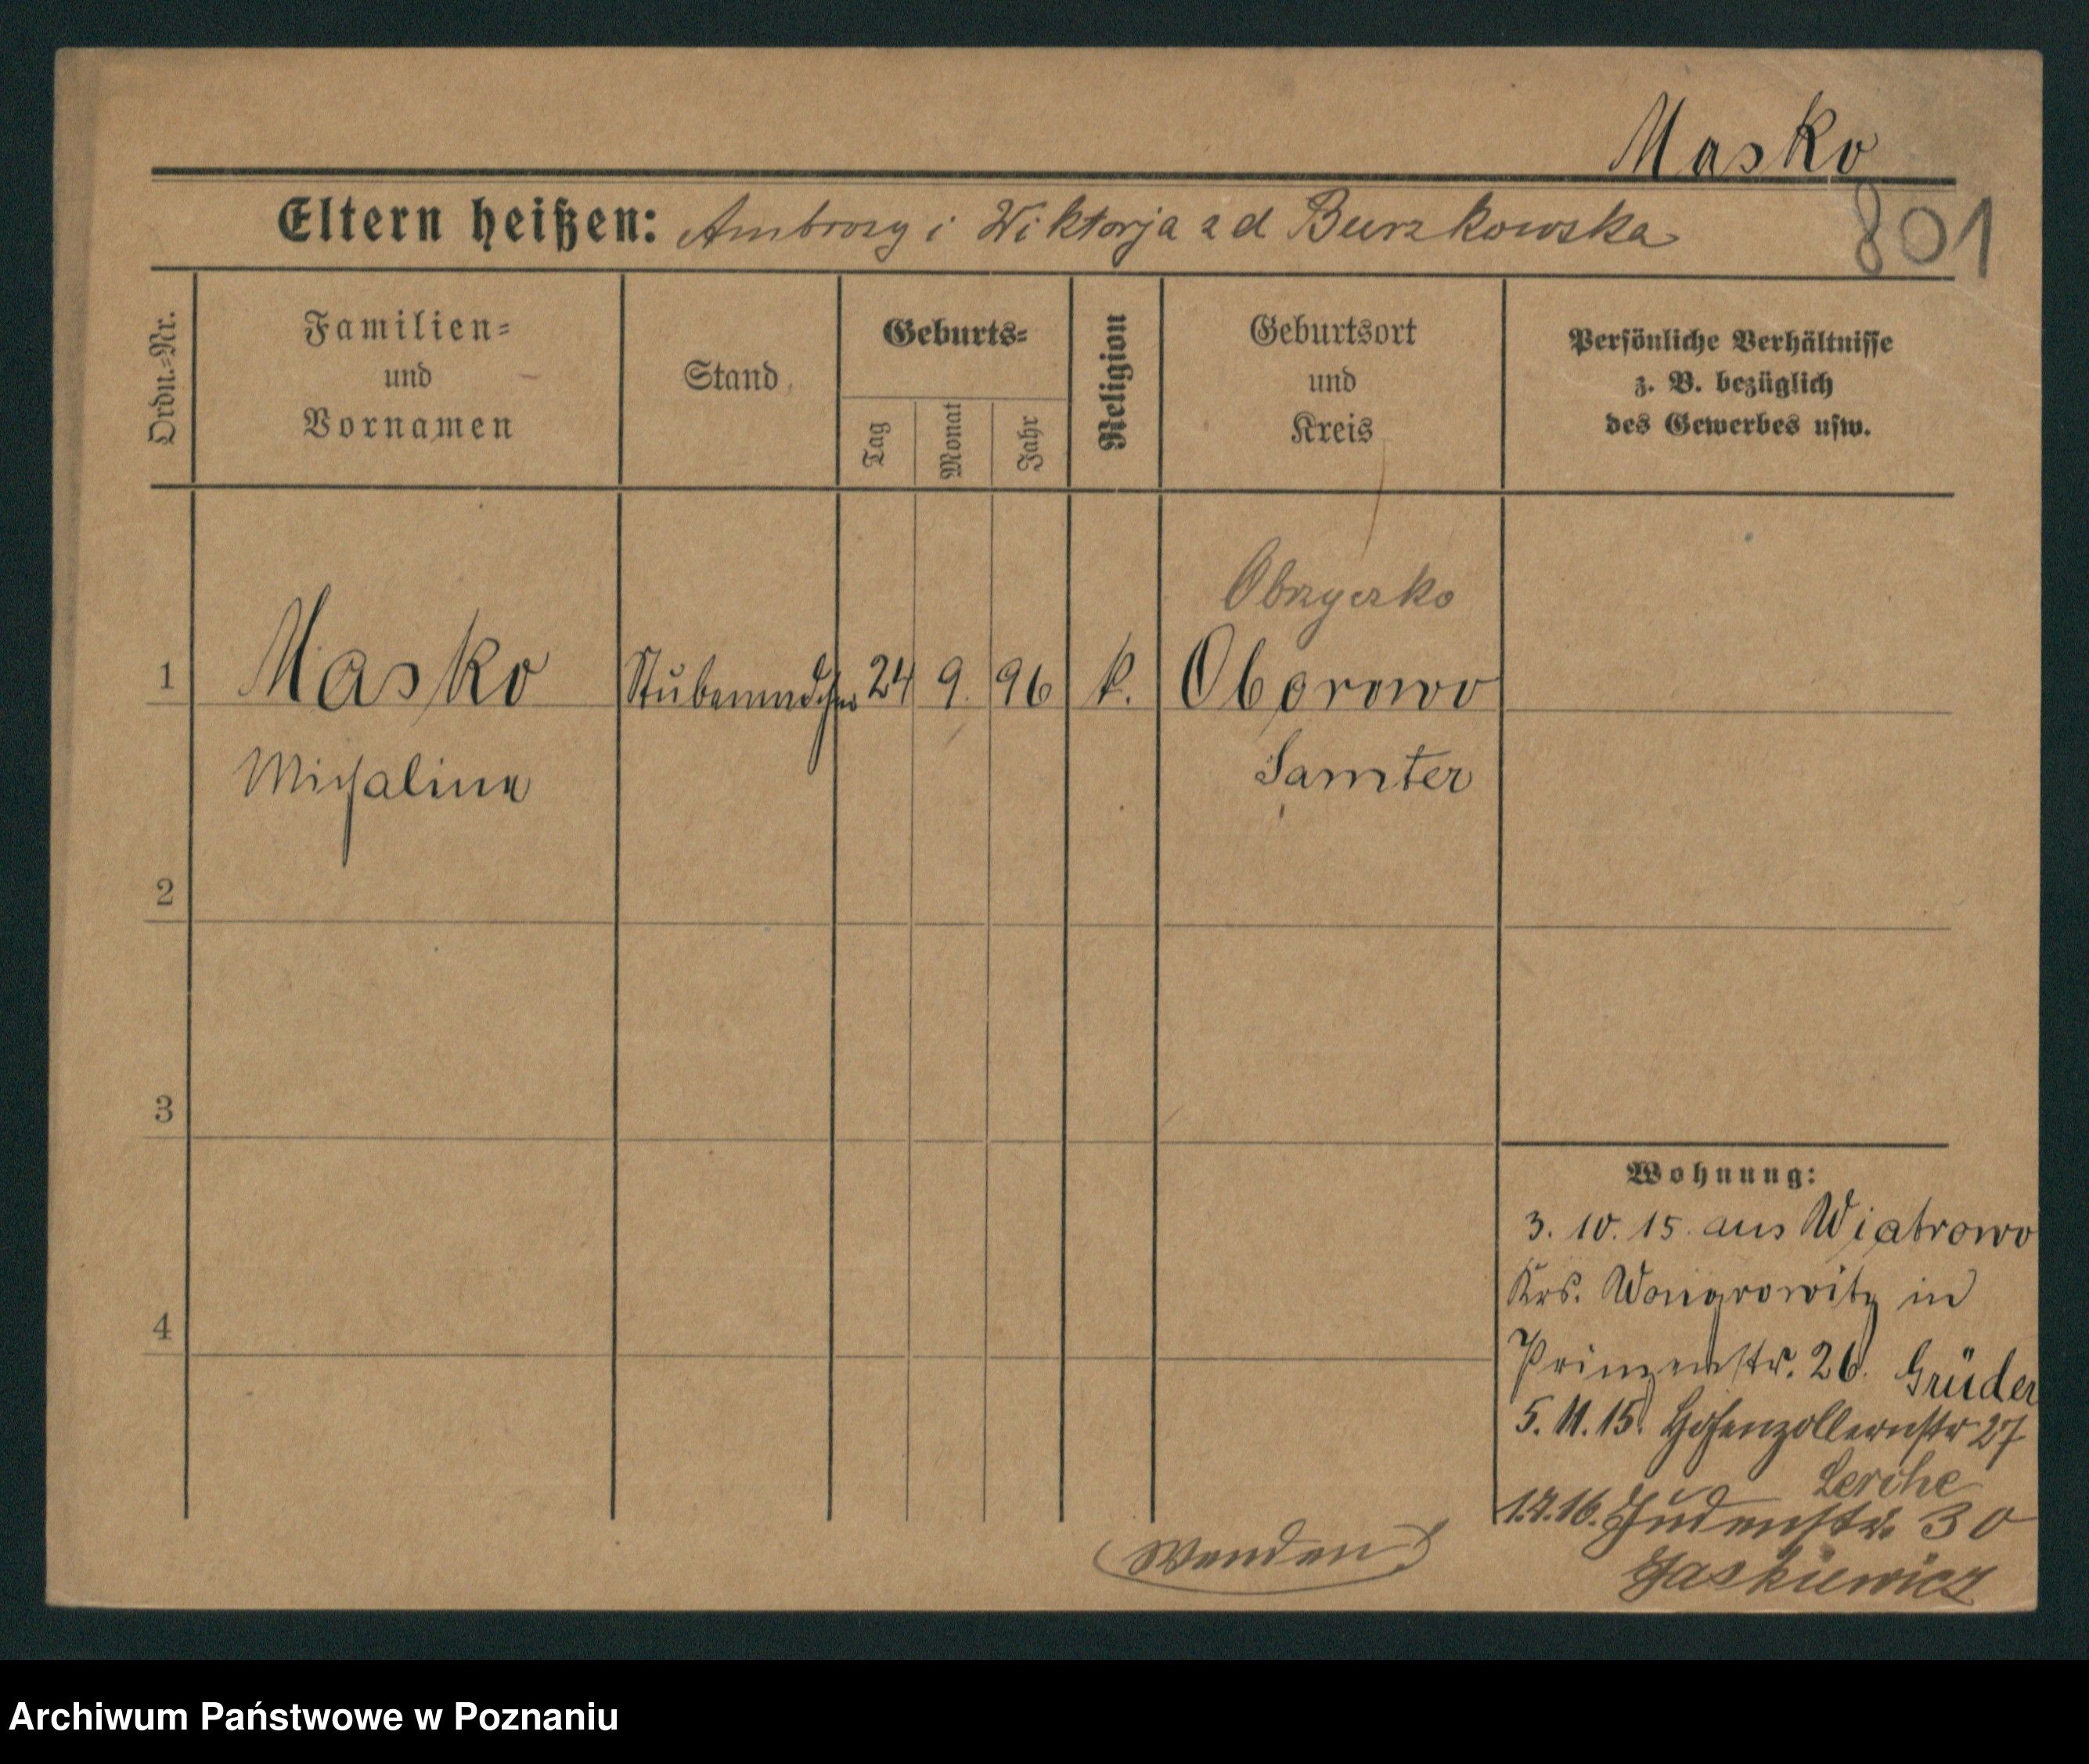 Masko
801
Eltern heißen: Ambrozy i Wiktorja z d Burzkowska
Ordn.-Nr.
Familien-
und
Vornamen
Stand
Geburts-
Tag
Monat
Jahr
Religion
Geburtsort
und
Kreis
Persönliche Verhältnisse
z. B. bezüglich
des Gewerbes usw.
Obrzycko
1 Masko Stubenmädchen 24 9. 96 k. Oborowo
Michalina Samter
2
3
4
Wohnung:
3. 10. 15. aus Wiatrowo
Krs. Wongrowitz in
Prinzenstr. 26. Grüder
5. 11. 15. Hohenzollernstr 27
Lerche
1.4.16. Judenstr. 30
Jaskiewicz
(Wenden)
Archiwum Państwowe w Poznaniu